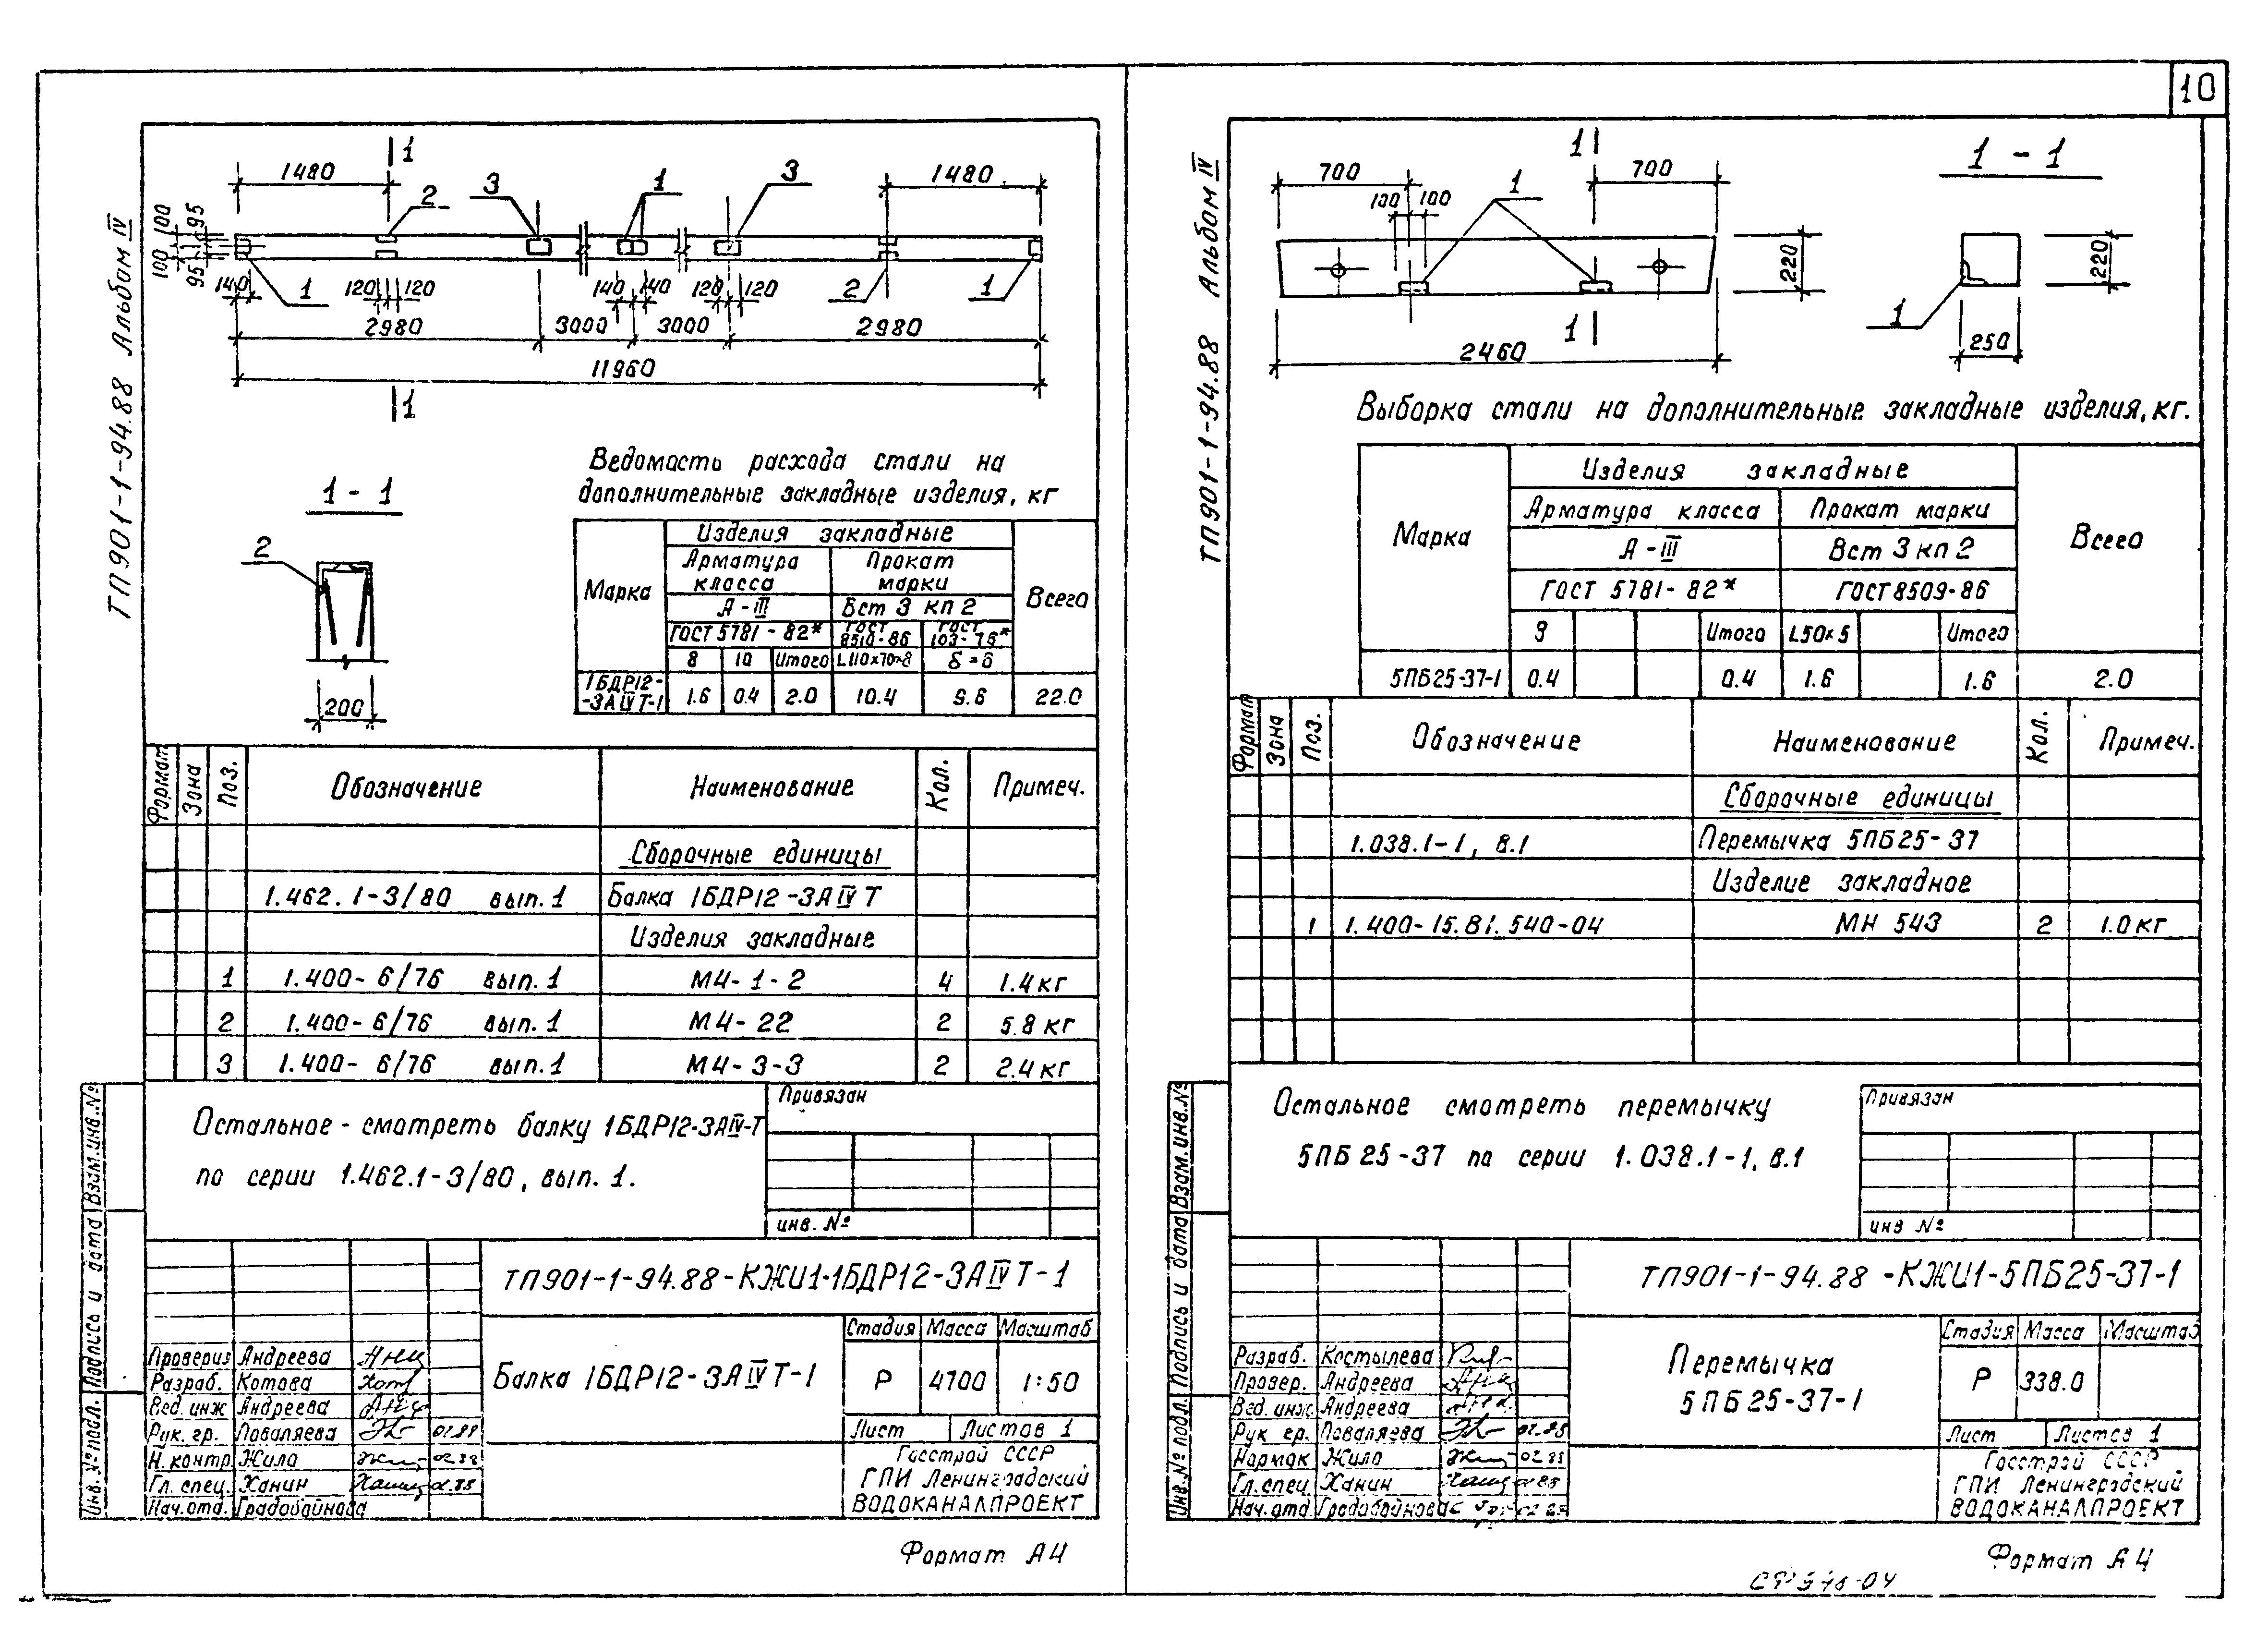 10
ТП901-1-94.88 Альбом IV
1480
1
2
3
1
3
1480
100 95
100 95
140
1
120 120
140 140
120 120
2
1
2980
3000
3000
2980
11960
1
1-1
2
200
Ведомость расхода стали на
дополнительные закладные изделия, кг
Марка
Изделия закладные
Всего
Арматура класса
Прокат марки
А-III
Вст 3 кп 2
ГОСТ 5781-82*
ГОСТ 8510-86
ГОСТ 103-76*
8 10 Итого L110×70×8 δ=6
1БДР12-3АIVТ-1 1.6 0.4 2.0 10.4 9.6 22.0
Формат Зона Поз. Обозначение Наименование Кол. Примеч.
Сборочные единицы
1.462.1-3/80 вып.1 Балка 1БДР12-3АIVТ
Изделия закладные
1 1.400-6/76 вып.1 М4-1-2 4 1.4кг
2 1.400-6/76 вып.1 М4-22 2 5.8кг
3 1.400-6/76 вып.1 М4-3-3 2 2.4кг
Остальное - смотреть балку 1БДР12-3АIV-Т
по серии 1.462.1-3/80, вып. 1.
Привязан
инв. №
ТП901-1-94.88-КЖИ1-1БДР12-3АIVТ-1
Балка 1БДР12-3АIVТ-1
Стадия Масса Масштаб
Р 4700 1:50
Лист Листов 1
Госстрой СССР
ГПИ Ленинградский
ВОДОКАНАЛПРОЕКТ
Проверил Андреева
Разраб. Котова
Вед. инж Андреева
Рук. гр. Поваляева 02.88
Н.контр Жило 02.88
Гл. спец. Ханин 02.88
Нач.отд. Градобойнова
Инв.№подл. Подпись и дата Взам.инв.№
Формат А4
ТП901-1-94.88 Альбом IV
1
700
700
100 100
1
220
2460
1
1-1
220
1
250
Выборка стали на дополнительные закладные изделия, кг.
Марка
Изделия закладные
Всего
Арматура класса
Прокат марки
А-III
Вст 3 кп 2
ГОСТ 5781-82*
ГОСТ8509-86
9 Итого L50×5 Итого
5ПБ25-37-1 0.4 0.4 1.6 1.6 2.0
Формат Зона Поз. Обозначение Наименование Кол. Примеч.
Сборочные единицы
1.038.1-1, в.1 Перемычка 5ПБ25-37
Изделие закладное
1 1.400-15.В1.540-04 МН 543 2 1.0кг
Остальное смотреть перемычку
5ПБ25-37 по серии 1.038.1-1, в.1
Привязан
инв №
ТП901-1-94.88-КЖИ1-5ПБ25-37-1
Перемычка
5ПБ25-37-1
Стадия Масса Масштаб
Р 338.0
Лист Листов 1
Госстрой СССР
ГПИ Ленинградский
ВОДОКАНАЛПРОЕКТ
Разраб. Костылева
Провер. Андреева
Вед. инж. Андреева
Рук гр. Поваляева 02.88
Нормок Жило 02.88
Гл.спец. Ханин
Нач.отд. Градобойнова
Инв.№подл. Подпись и дата Взам.инв.№
Формат А4